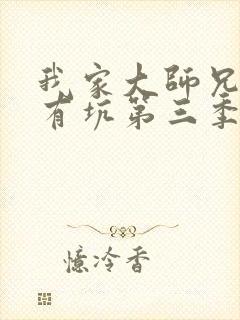 我家大师兄
有坑第三季
憶泠香